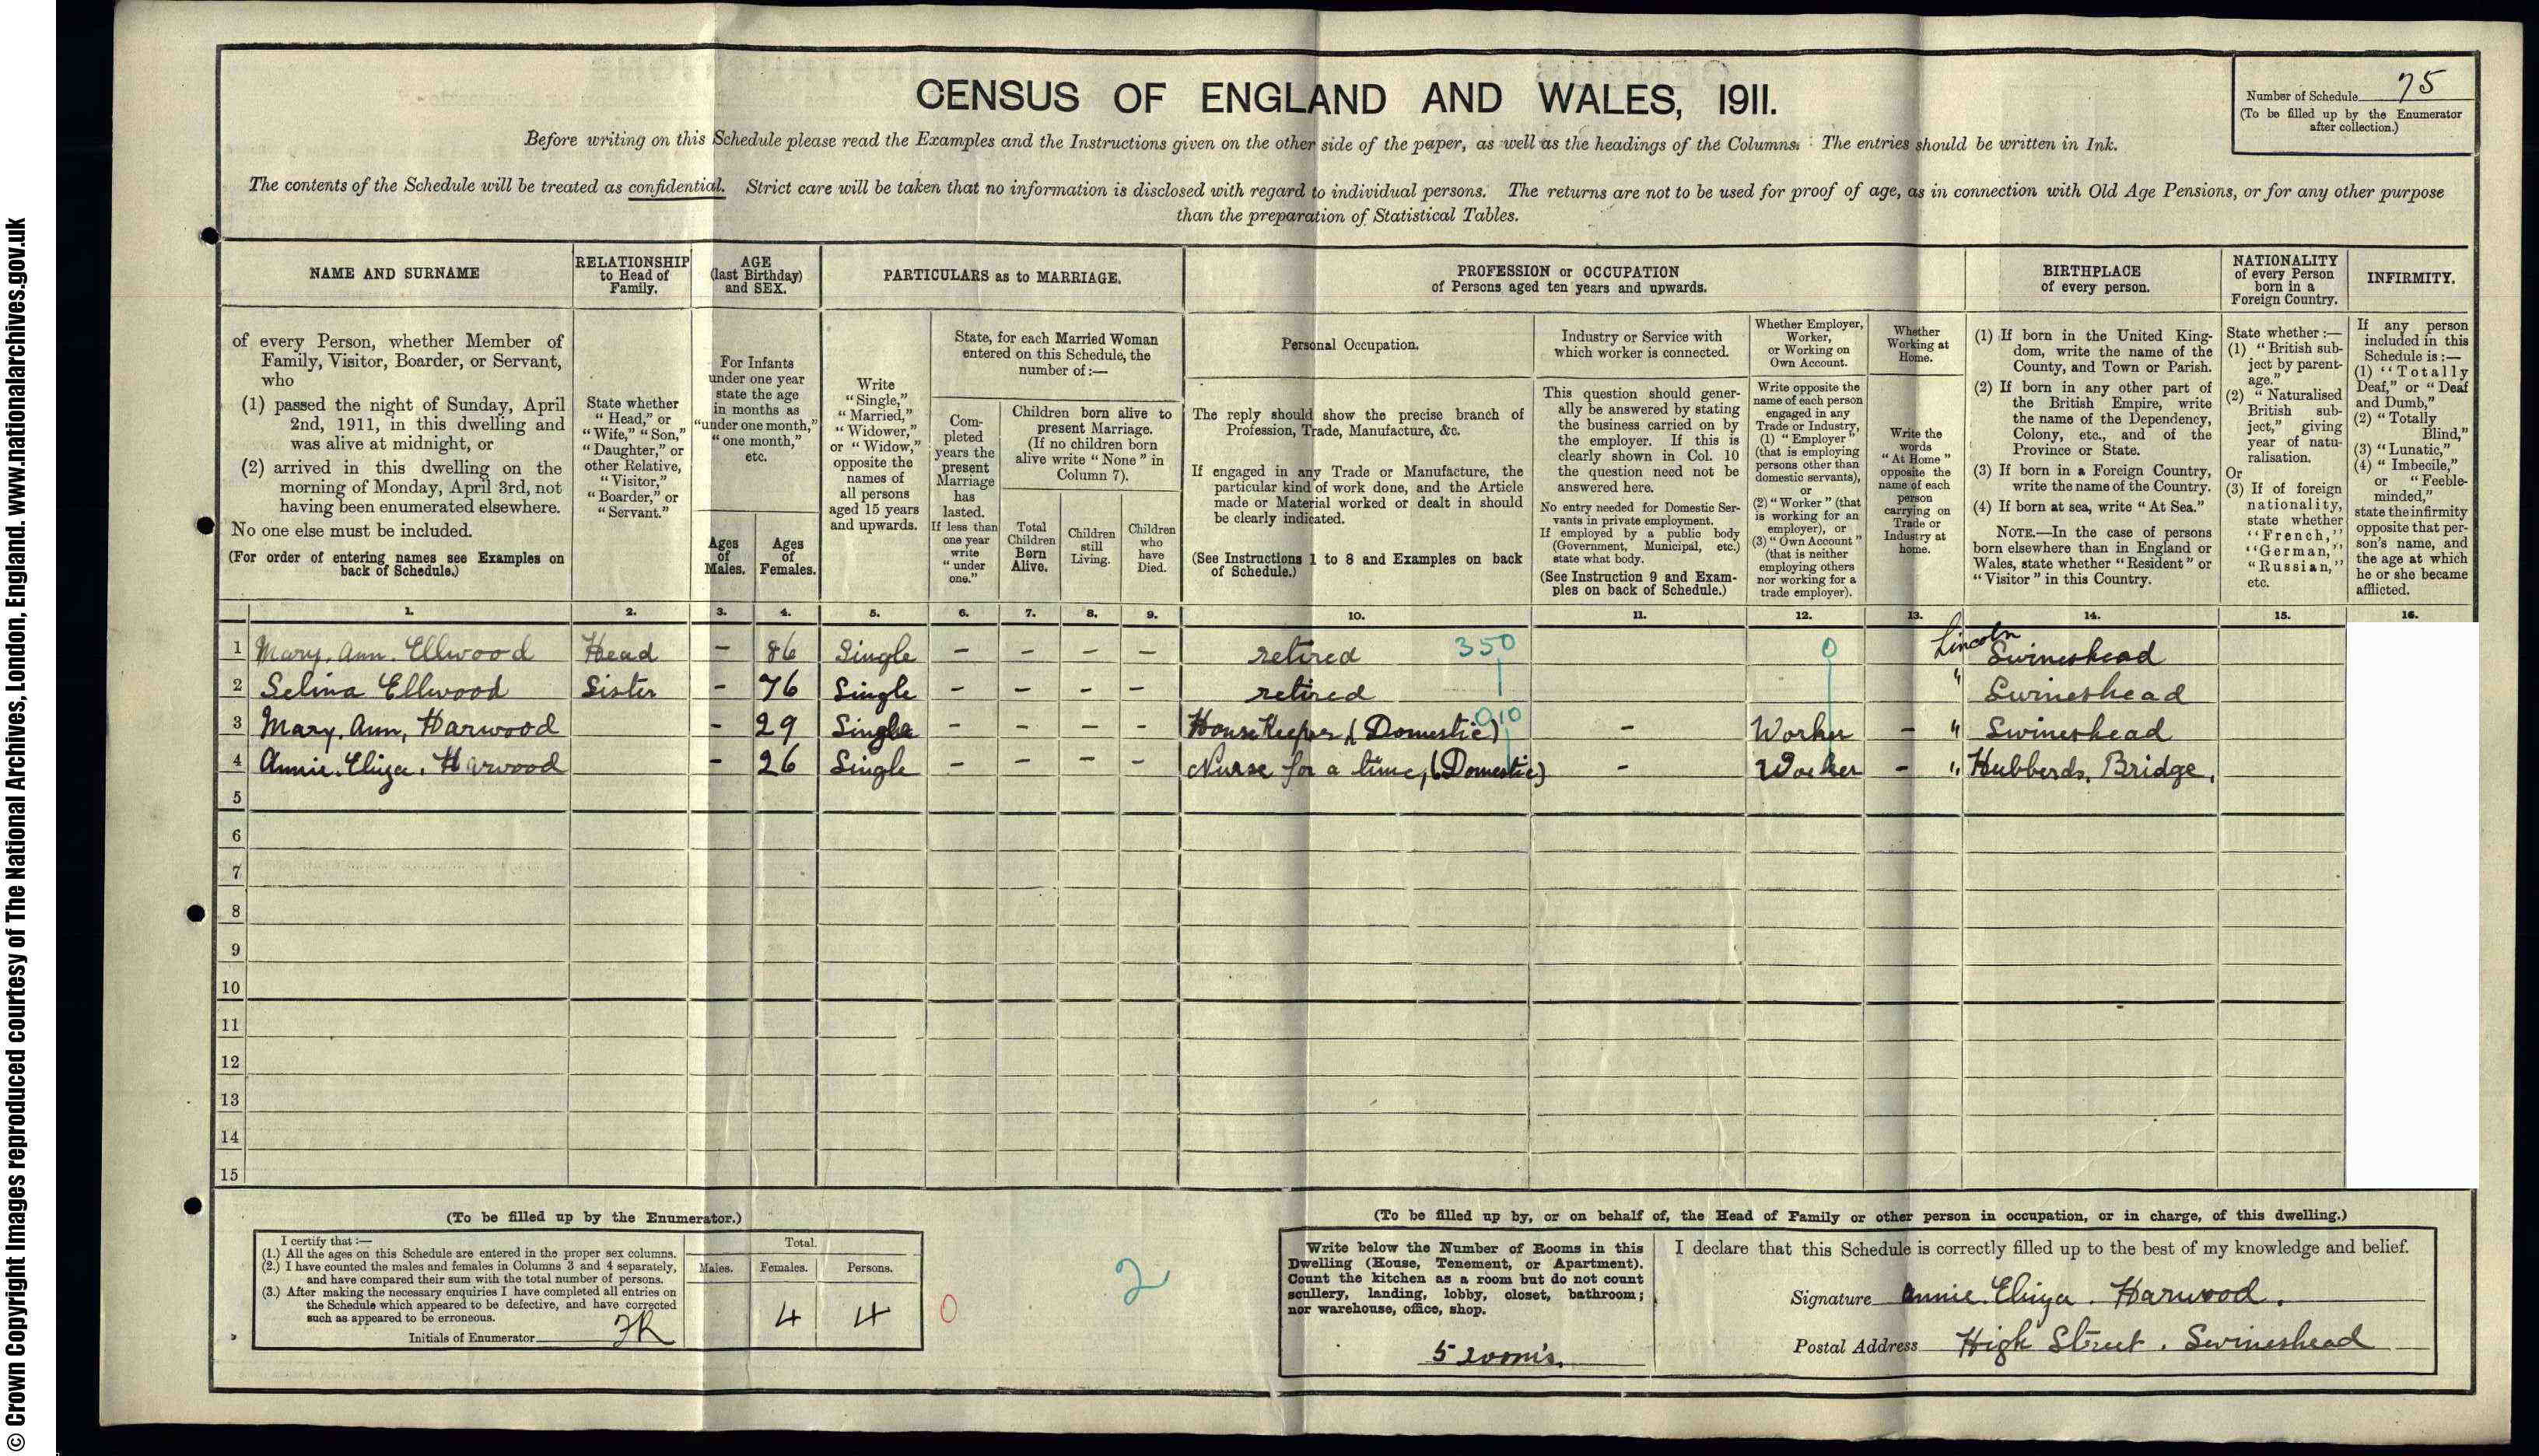 CENSUS OF ENGLAND AND WALES, 1911.
Number of Schedule 75
(To be filled up by the Enumerator
after collection.)
Before writing on this Schedule please read the Examples and the Instructions given on the other side of the paper, as well as the headings of the Columns. The entries should be written in Ink.
The contents of the Schedule will be treated as confidential. Strict care will be taken that no information is disclosed with regard to individual persons. The returns are not to be used for proof of age, as in connection with Old Age Pensions, or for any other purpose
than the preparation of Statistical Tables.
NAME AND SURNAME
of every Person, whether Member of
Family, Visitor, Boarder, or Servant,
who
(1) passed the night of Sunday, April
2nd, 1911, in this dwelling and
was alive at midnight, or
(2) arrived in this dwelling on the
morning of Monday, April 3rd, not
having been enumerated elsewhere.
No one else must be included.
(For order of entering names see Examples on
back of Schedule.)
RELATIONSHIP
to Head of
Family.
State whether
"Head," or
"Wife," "Son,"
"Daughter," or
other Relative,
"Visitor,"
"Boarder," or
"Servant."
AGE
(last Birthday)
and SEX.
For Infants
under one year
state the age
in months as
"under one month,"
"one month,"
etc.
Ages
of
Males.
Ages
of
Females.
PARTICULARS as to MARRIAGE.
Write
"Single,"
"Married,"
"Widower,"
or "Widow,"
opposite the
names of
all persons
aged 15 years
and upwards.
State, for each Married Woman
entered on this Schedule, the
number of:—
Com-
pleted
years the
present
Marriage
has
lasted.
If less than
one year
write
"under
one."
Children born alive to
present Marriage.
(If no children born
alive write "None" in
Column 7).
Total
Children
Born
Alive.
Children
still
Living.
Children
who
have
Died.
PROFESSION or OCCUPATION
of Persons aged ten years and upwards.
Personal Occupation.
The reply should show the precise branch of
Profession, Trade, Manufacture, &c.
If engaged in any Trade or Manufacture, the
particular kind of work done, and the Article
made or Material worked or dealt in should
be clearly indicated.
(See Instructions 1 to 8 and Examples on back
of Schedule.)
Industry or Service with
which worker is connected.
This question should gener-
ally be answered by stating
the business carried on by
the employer. If this is
clearly shown in Col. 10
the question need not be
answered here.
No entry needed for Domestic Ser-
vants in private employment.
If employed by a public body
(Government, Municipal, etc.)
state what body.
(See Instruction 9 and Exam-
ples on back of Schedule.)
Whether Employer,
Worker,
or Working on
Own Account.
Write opposite the
name of each person
engaged in any
Trade or Industry,
(1) "Employer"
(that is employing
persons other than
domestic servants),
or
(2) "Worker" (that
is working for an
employer), or
(3) "Own Account"
(that is neither
employing others
nor working for a
trade employer).
Whether
Working at
Home.
Write the
words
"At Home"
opposite the
name of each
person
carrying on
Trade or
Industry at
home.
BIRTHPLACE
of every person.
(1) If born in the United King-
dom, write the name of the
County, and Town or Parish.
(2) If born in any other part of
the British Empire, write
the name of the Dependency,
Colony, etc., and of the
Province or State.
(3) If born in a Foreign Country,
write the name of the Country.
(4) If born at sea, write "At Sea."
NOTE.—In the case of persons
born elsewhere than in England or
Wales, state whether "Resident" or
"Visitor" in this Country.
NATIONALITY
of every Person
born in a
Foreign Country.
State whether:—
(1) "British sub-
ject by parent-
age."
(2) "Naturalised
British sub-
ject," giving
year of natu-
ralisation.
Or
(3) If of foreign
nationality,
state whether
"French,"
"German,"
"Russian,"
etc.
INFIRMITY.
If any person
included in this
Schedule is:—
(1) "Totally
Deaf," or "Deaf
and Dumb,"
(2) "Totally
Blind,"
(3) "Lunatic,"
(4) "Imbecile,"
or "Feeble-
minded,"
state the infirmity
opposite that per-
son's name, and
the age at which
he or she became
afflicted.
1. 2. 3. 4. 5. 6. 7. 8. 9. 10. 11. 12. 13. 14. 15. 16.
1 Mary. Ann. Ellwood Head – 86 Single – – – – retired 350 0 Lincoln Swineshead
2 Selina Ellwood Sister – 76 Single – – – – retired " Swineshead
3 Mary. Ann, Harwood – 29 Single – – – – House Keeper, (Domestic) 010 – Worker – " Swineshead
4 Annie. Eliza. Harwood – 26 Single – – – – Nurse for a time, (Domestic) – Worker – " Hubberds. Bridge.
5
6
7
8
9
10
11
12
13
14
15
(To be filled up by the Enumerator.)
I certify that:—
(1.) All the ages on this Schedule are entered in the proper sex columns.
(2.) I have counted the males and females in Columns 3 and 4 separately,
and have compared their sum with the total number of persons.
(3.) After making the necessary enquiries I have completed all entries on
the Schedule which appeared to be defective, and have corrected
such as appeared to be erroneous.
Initials of Enumerator
Total.
Males. Females. Persons.
4 4
0
2
(To be filled up by, or on behalf of, the Head of Family or other person in occupation, or in charge, of this dwelling.)
Write below the Number of Rooms in this
Dwelling (House, Tenement, or Apartment).
Count the kitchen as a room but do not count
scullery, landing, lobby, closet, bathroom;
nor warehouse, office, shop.
5 rooms.
I declare that this Schedule is correctly filled up to the best of my knowledge and belief.
Signature Annie. Eliza. Harwood.
Postal Address High Street. Swineshead
© Crown Copyright Images reproduced courtesy of The National Archives, London, England. www.nationalarchives.gov.uk